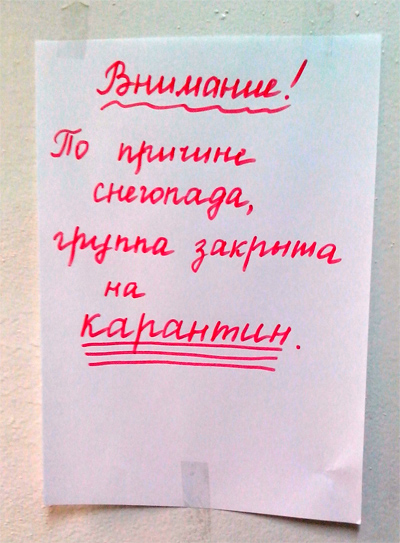 Внимание!
По причине
снегопада,
группа закрыта
на
карантин.